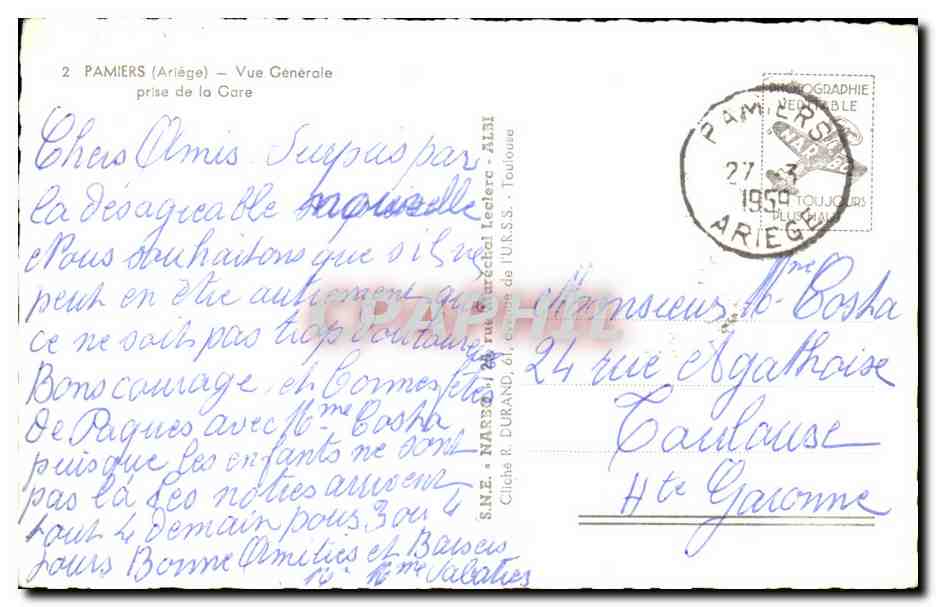 2 PAMIERS (Ariége) — Vue Générale
prise de la Gare
Chers Amis Surpris par
la désagréable nouvelle
Nous souhaitons que s'il ne
peut en être autrement que
ce ne soit pas trop
Bons courage et bonnes fêtes
de Paques avec Mme Costa
puisque les enfants ne sont
pas là les notres arrivent
tout 4 demain pour 3 ou 4
jours Bonne Amitiés et Baisers
Mr Mme
S.N.E. « NARBO », 26 rue Maréchal Leclerc - ALBI
Cliché R. DURAND, 61, avenue de l'U.R.S.S. - Toulouse
CPAPHIL
PHOTOGRAPHIE
VERITABLE
NARBO
TOUJOURS
PLUS HAUT
PAMIERS
27 - 3
1959
ARIEGE
Monsieur Mme Costa
24 rue Agathoise
Toulouse
Hte Garonne